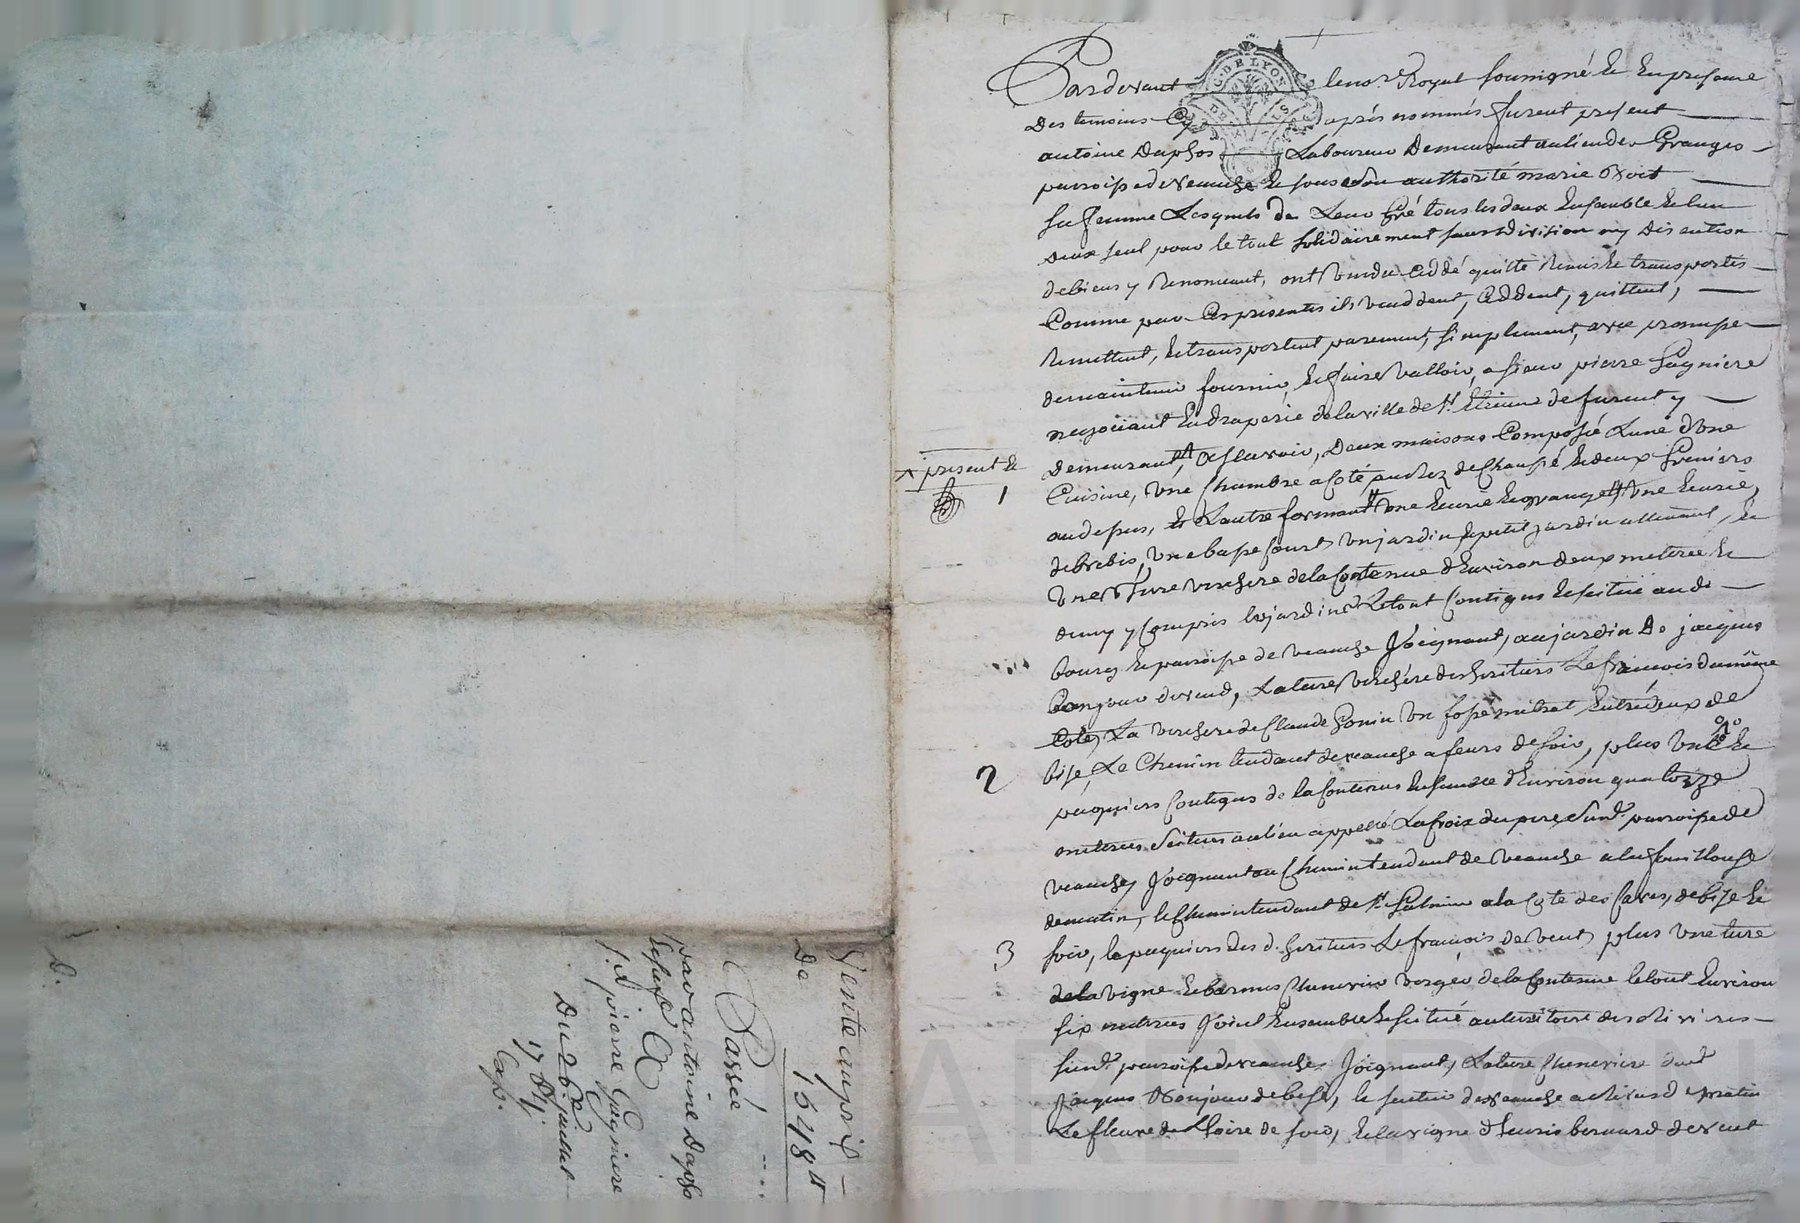 Pardevant le no.re Royal soussigné et en presence
Des temoins Cy après nommés furent present
antoine Daphos Laboureur Demeurant au lieu des Granges
parroisse de veauche et sous son authorité marie
sa femme Lesquels de Leur Gré tous les deux Ensemble et l'un
deux seul pour le tout solidairement sans division ny Discution
de biens y Renonceant, ont vendu Ceddé quitté Remis et transportés
Comme par Ces presentes ils vendent, Ceddent, quittent,
Remettent, et transportent purement, simplement, avec promesse
de maintenir fournir, et faire valloir, a sieur pierre Gagniere
negotiant en Draperie de la ville de St Etienne de furent y
Demeurant, Assavoir, Deux maisons Composée Lune d'une
^ present et
1
Cuisine, une Chambre a Coté au rez de Chaussé et deux Greniers
audessus, et Lautre formant une Ecurie et grange, une Ecurie
de brebis, une basse Court, un jardin et petit jardin attenant, et
une Terre verchere de la Contenue d'Environ deux meterée et
demy y Compris les jardins, Le tout Contigus et scitué au d.
bourg et parroisse de veauche Joignant, au jardin De jacques
Bonjour de vend, La terre verchère des heritiers Lefrancois du même
Coté, La verchere de Claude Gonin un fossé mitoyen Entredeux de
2
bise, Le Chemin tendant de veauche a feurs de soir, plus
paquiers Contigus de la Contenue Ensemble d'Environ quatorze
meterées scitues au lieu appellé La Croix du pere sud. parroisse de
veauche, Joignant au Chemin tendant de veauche a la fouillouse
de matin, le Chemin tendant de St Galmier a la Cote des Caves, de bise et
3
soir, le paquiers des d. heritiers Lefrancois de vent, plus une terre
de la vigne et hermes Cheneviere verger de la Contenue le tout Environ
six meterées Joint Ensemble et scitué au territoire des Rivieres
sud. parroisse de veauche, Joignant, La terre Cheneviere dud.
Jacques Bonjour de bise, le sentier de veauche a de matin
Le fleuve de Loire de soir, et la vigne d'henris bernard de vent
Vente au prix
De 1648 tt
Passée
par antoine Daphos
et sa femme
A
S.r pierre Gagniere
Du 26 juillet
17
D.